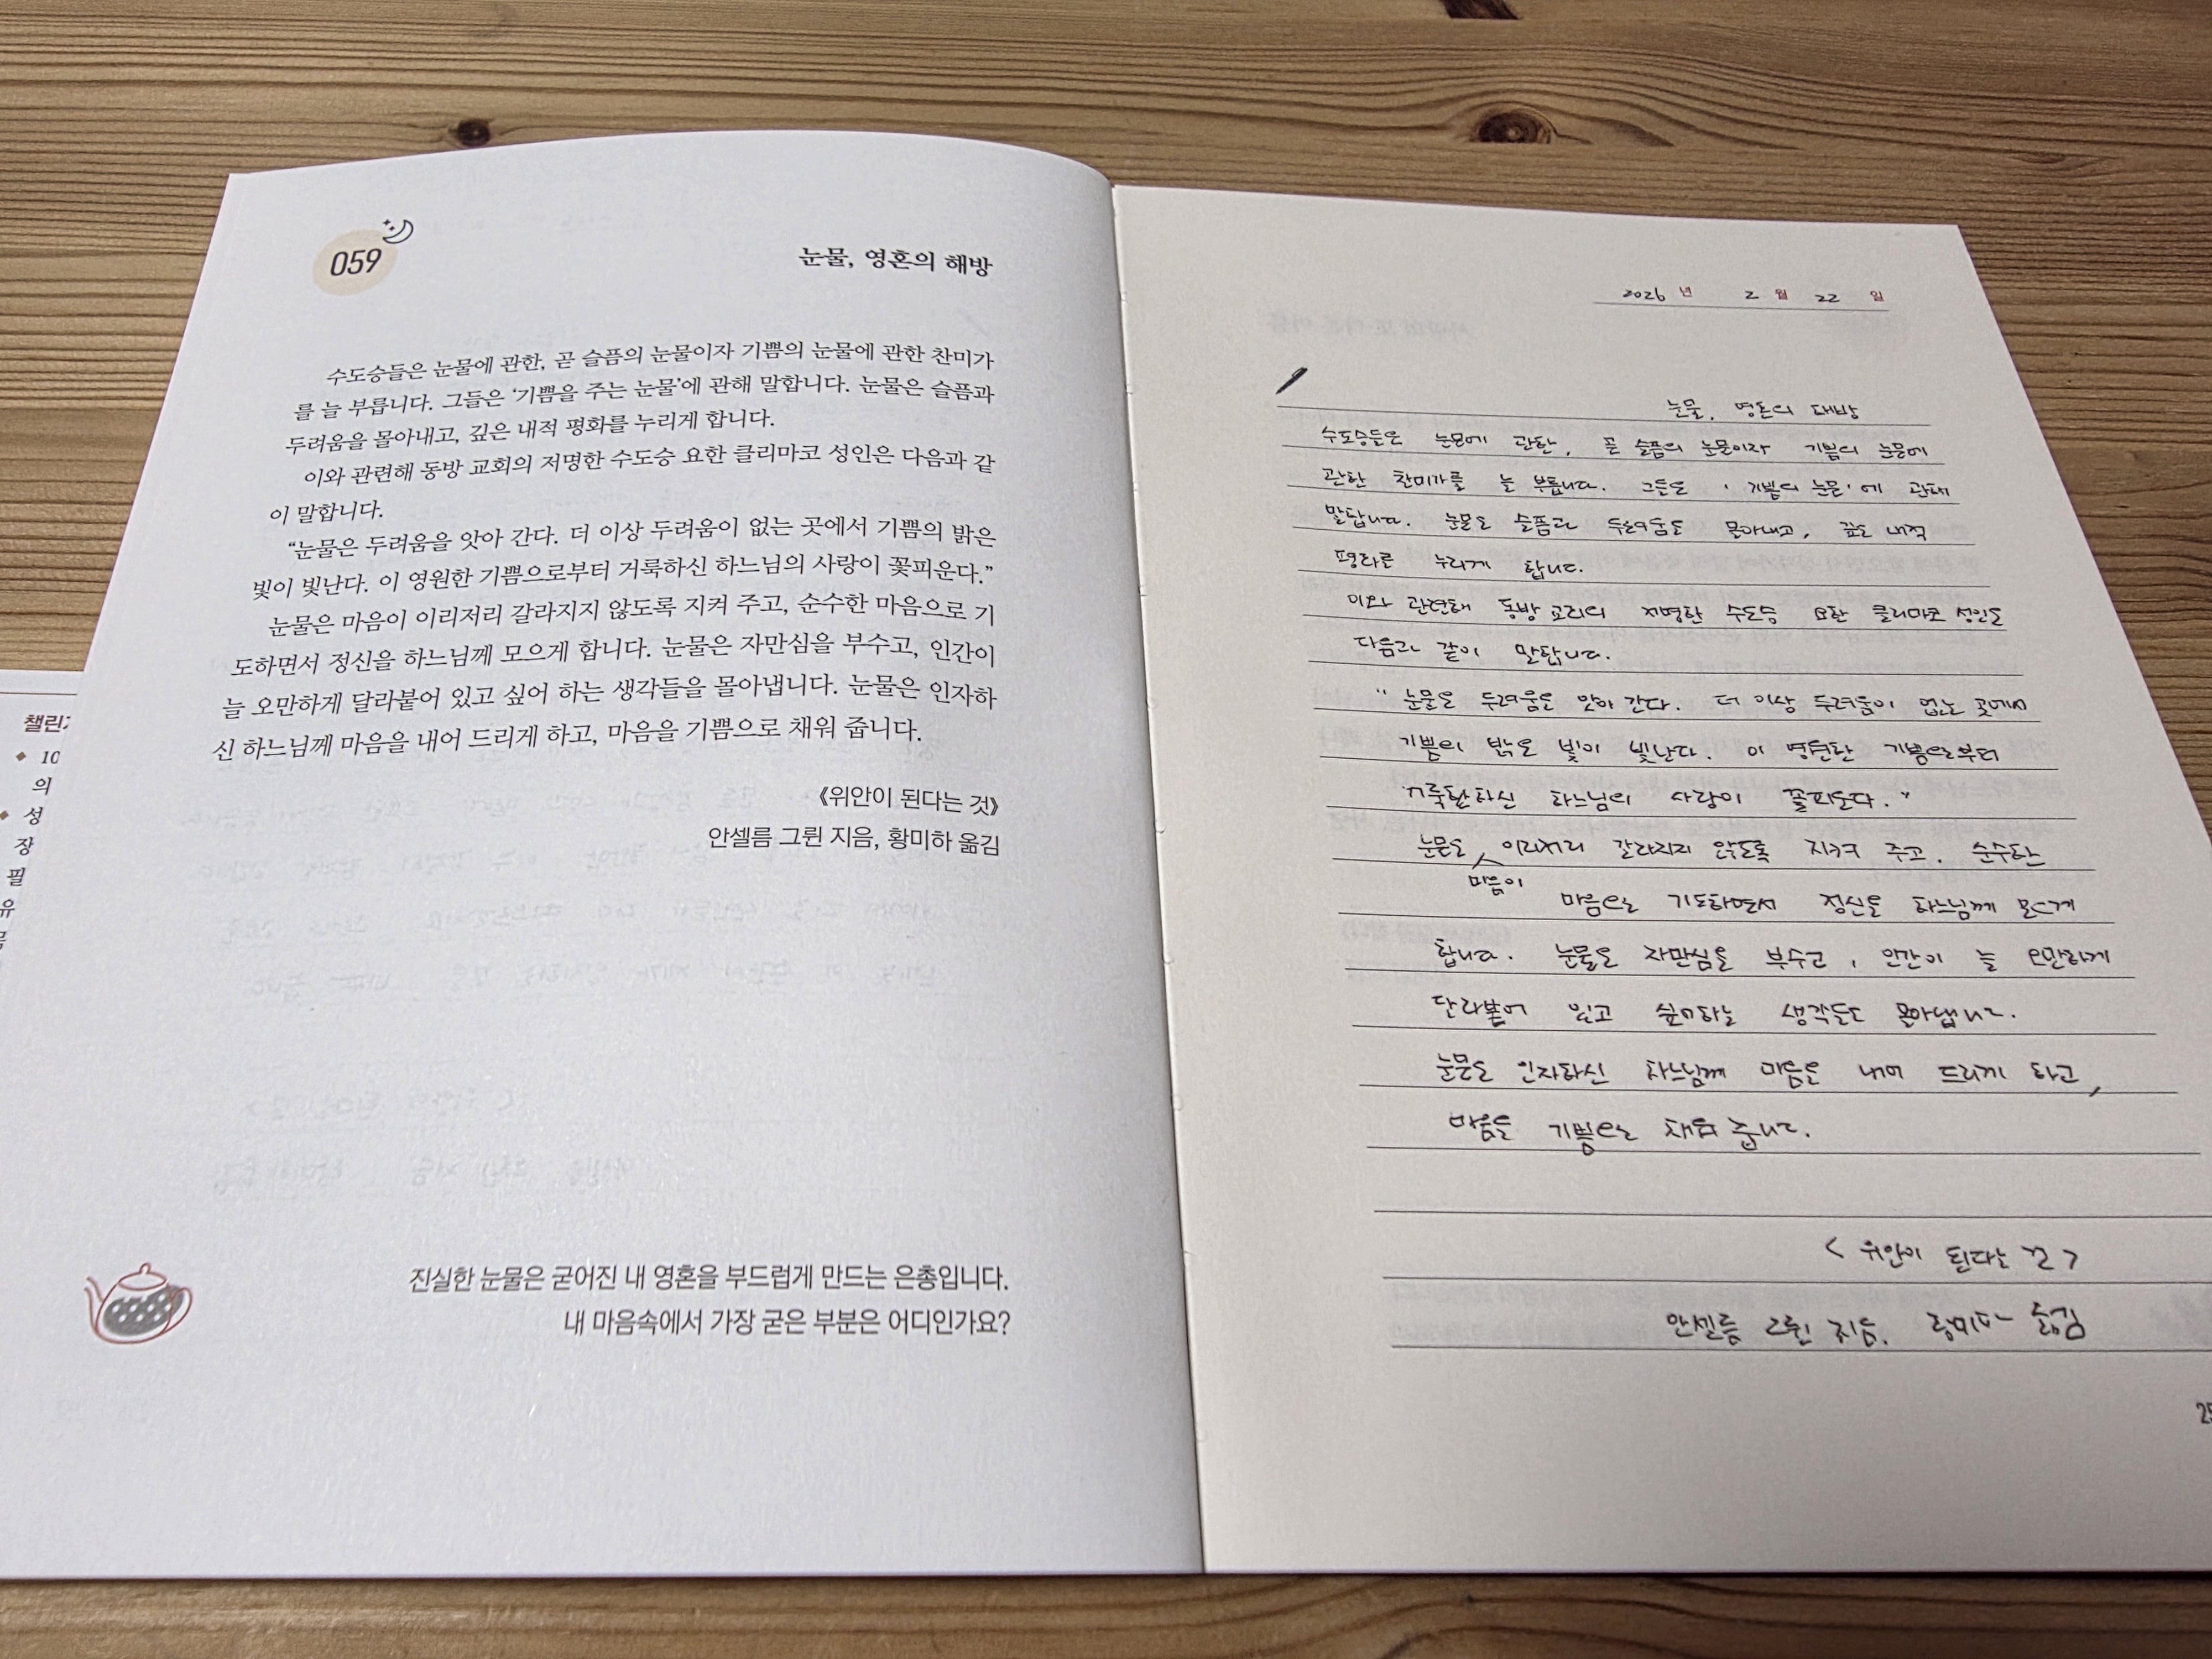 059
눈물, 영혼의 해방
수도승들은 눈물에 관한, 곧 슬픔의 눈물이자 기쁨의 눈물에 관한 찬미가
를 늘 부릅니다. 그들은 ‘기쁨을 주는 눈물’에 관해 말합니다. 눈물은 슬픔과
두려움을 몰아내고, 깊은 내적 평화를 누리게 합니다.
이와 관련해 동방 교회의 저명한 수도승 요한 클리마코 성인은 다음과 같
이 말합니다.
“눈물은 두려움을 앗아 간다. 더 이상 두려움이 없는 곳에서 기쁨의 밝은
빛이 빛난다. 이 영원한 기쁨으로부터 거룩하신 하느님의 사랑이 꽃피운다.”
눈물은 마음이 이리저리 갈라지지 않도록 지켜 주고, 순수한 마음으로 기
도하면서 정신을 하느님께 모으게 합니다. 눈물은 자만심을 부수고, 인간이
늘 오만하게 달라붙어 있고 싶어 하는 생각들을 몰아냅니다. 눈물은 인자하
신 하느님께 마음을 내어 드리게 하고, 마음을 기쁨으로 채워 줍니다.
《위안이 된다는 것》
안셀름 그륀 지음, 황미하 옮김
진실한 눈물은 굳어진 내 영혼을 부드럽게 만드는 은총입니다.
내 마음속에서 가장 굳은 부분은 어디인가요?
10
의
성
장
필
유
2026 년 2 월 22 일
눈물, 영혼의 해방
수도승들은 눈물에 관한, 곧 슬픔의 눈물이자 기쁨의 눈물에
관한 찬미가를 늘 부릅니다. 그들은 '기쁨의 눈물'에 관해
말합니다. 눈물은 슬픔과 두려움을 몰아내고, 깊은 내적
평화를 누리게 합니다.
이와 관련해 동방 교회의 저명한 수도승 요한 클리마코 성인은
다음과 같이 말합니다.
"눈물은 두려움을 앗아 간다. 더 이상 두려움이 없는 곳에서
기쁨의 밝은 빛이 빛난다. 이 영원한 기쁨으로부터
하느님의 사랑이 꽃피운다."
눈물은 이리저리 갈라지지 않도록 지켜 주고, 순수한
마음이
마음으로 기도하면서 정신을 하느님께 모으게
합니다. 눈물은 자만심을 부수고, 인간이 늘 오만하게
달라붙어 있고 싶어하는 생각들을 몰아냅니다.
눈물은 인자하신 하느님께 마음을 내어 드리게 하고,
마음을 기쁨으로 채워 줍니다.
< 위안이 된다는 것 >
안셀름 그륀 지음, 황미하 옮김